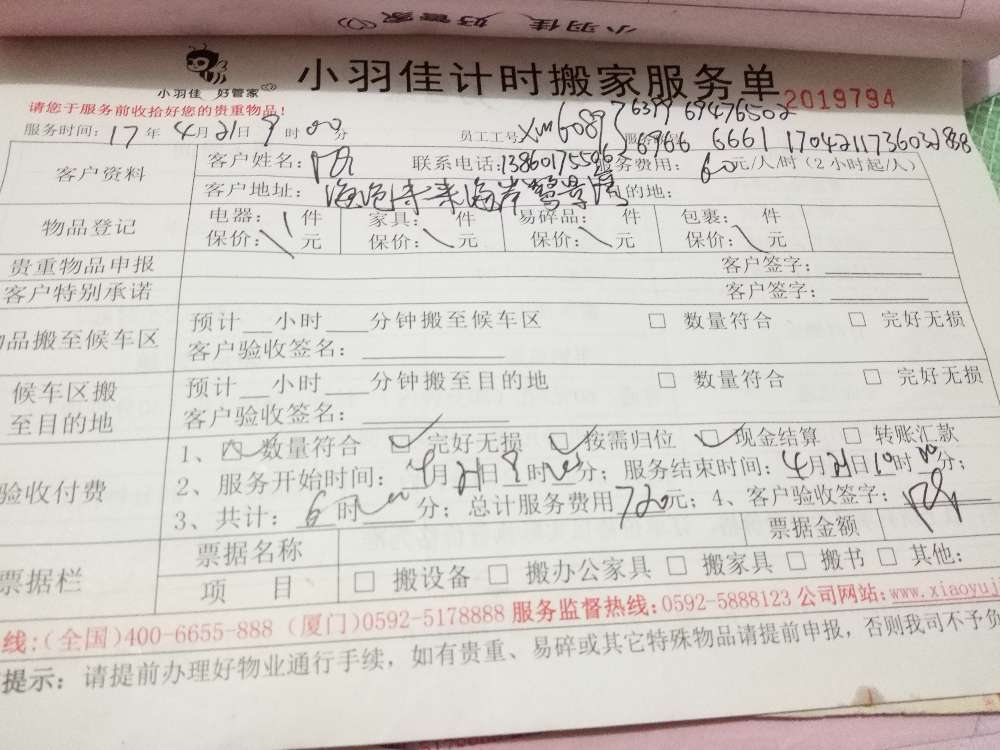 小羽佳 好管家
小羽佳 好管家
小羽佳计时搬家服务单
2019794
请您于服务前收拾好您的贵重物品!
服务时间: 17年4月21日9时00分 员工工号 XM6089 6377 69476502
6966 6661 1704211736032868
客户资料 客户姓名: 联系电话:13860175506 服务费用: 60元/人/时(2小时起/人)
客户地址: 海沧未来海岸鹭景湾 目的地:
物品登记 电器: 件 家具: 件 易碎品: 件 包裹: 件
保价: 元 保价: 元 保价: 元 保价: 元
贵重物品申报 客户签字:
客户特别承诺 客户签字:
品搬至候车区 预计__小时___分钟搬至候车区 □ 数量符合 □ 完好无损
客户验收签名:
候车区搬至目的地 预计__小时___分钟搬至目的地 □ 数量符合 □ 完好无损
客户验收签名:
验收付费 1、☑数量符合 ☑完好无损 ☑按需归位 ☑现金结算 □ 转账汇款
2、服务开始时间: 4月21日9时00分; 服务结束时间: 4月21日10时00分;
3、共计: 6时 分; 总计服务费用720元; 4、客户验收签字:
票据栏 票据名称 票据金额
项 目 □ 搬设备 □ 搬办公家具 □ 搬家具 □ 搬书 □ 其他:
线:(全国)400-6655-888 (厦门)0592-5178888 服务监督热线:0592-5888123 公司网站:www.xiaoyuj
提示: 请提前办理好物业通行手续, 如有贵重、易碎或其它特殊物品请提前申报, 否则我司不予负